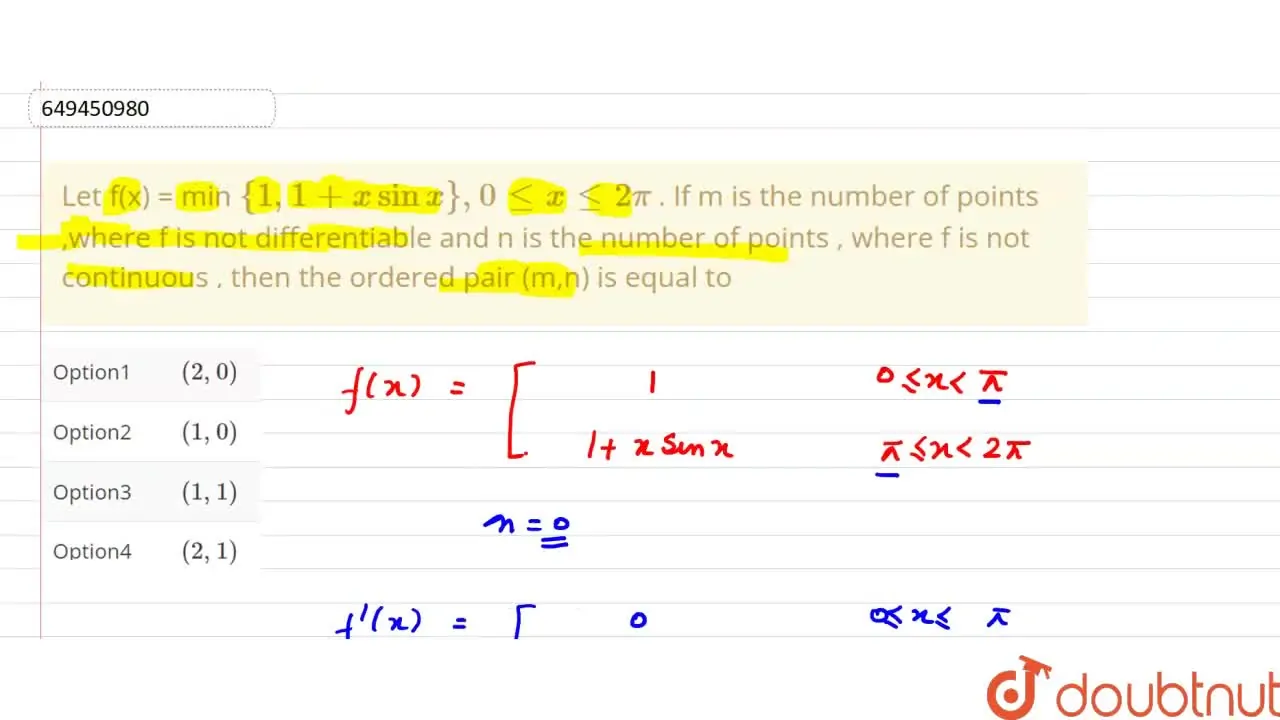 649450980
Let f(x) = min {1, 1 + x sin x}, 0 ≤ x ≤ 2π . If m is the number of points
,where f is not differentiable and n is the number of points , where f is not
continuous , then the ordered pair (m,n) is equal to
Option1 (2, 0)
Option2 (1, 0)
Option3 (1, 1)
Option4 (2, 1)
f(x) = [ 1 0 ≤ x < π
1 + x Sin x π ≤ x < 2π
n = 0
f'(x) = [ 0 0 ≤ x ≤ π
doubtnut